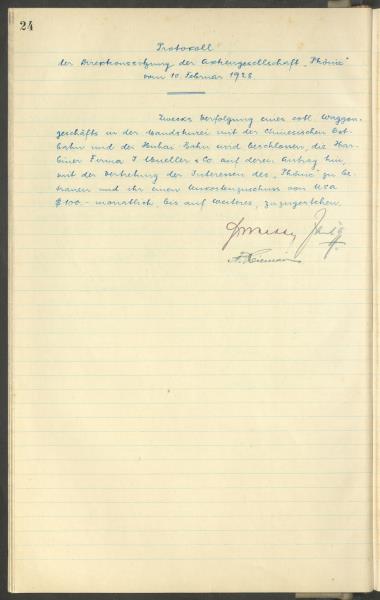 24
Protokoll
der Direktionssitzung der Aktiengesellschaft „Phönix"
vom 10. Februar 1928
Zwecks Verfolgung eines evtl. Waggon-
geschäfts in der Mandschurei mit der Chinesischen Ost-
bahn und der Huhai Bahn wird beschlossen, die Har-
biner Firma J. Mueller & Co. auf deren Antrag hin,
mit der Vertretung der Interessen des „Phönix" zu be-
trauen und ihr einen Unkostenzuschuss von
$ 100.- monatlich bis auf weiteres, zuzugestehen.